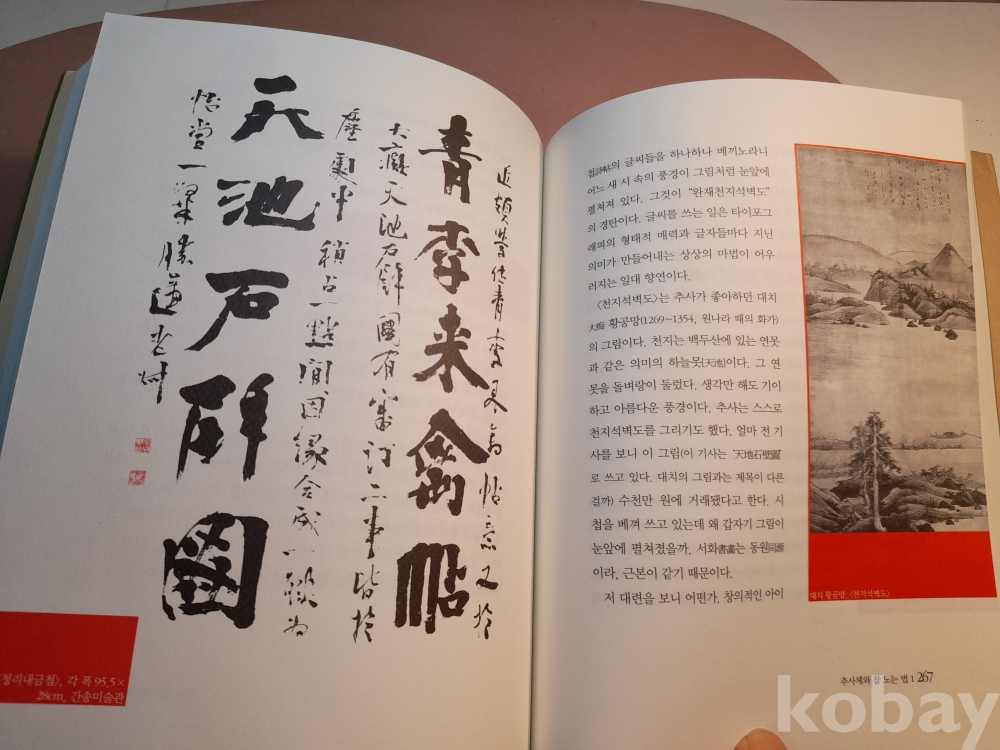 青李來禽帖
大癡天池石辟圖有審訂二事皆於
間因緣合成一聯為
天池石辟圖
怡堂一粲
〈청리내금첩〉, 각 폭 95.5×
28cm, 간송미술관
첩詩帖의 글씨들을 하나하나 베끼노라니
어느 새 시 속의 풍경이 그림처럼 눈앞에
펼쳐져 있다. 그것이 “완재천지석벽도”
의 경탄이다. 글씨를 쓰는 일은 타이포그
래피의 형태적 매력과 글자들마다 지닌
의미가 만들어내는 상상의 마법이 어우
러지는 일대 향연이다.
〈천지석벽도〉는 추사가 좋아하던 대치
大痴 황공망(1269~1354, 원나라 때의 화가)
의 그림이다. 천지는 백두산에 있는 연못
과 같은 의미의 하늘못[天池]이다. 그 연
못을 돌벼랑이 둘렀다. 생각만 해도 기이
하고 아름다운 풍경이다. 추사는 스스로
천지석벽도를 그리기도 했다. 얼마 전 기
사를 보니 이 그림(이 기사는 “天地石壁圖”
로 쓰고 있다. 대치의 그림과는 제목이 다른
걸까) 수천만 원에 거래됐다고 한다. 시
첩을 베껴 쓰고 있는데 왜 갑자기 그림이
눈앞에 펼쳐졌을까. 서화書畵는 동원同源
이라, 근본이 같기 때문이다.
저 대련을 보니 어떤가. 창의적인 아이
대치 황공망, 〈천지석벽도〉
추사체와 잘 노는 법 1 267
kobay